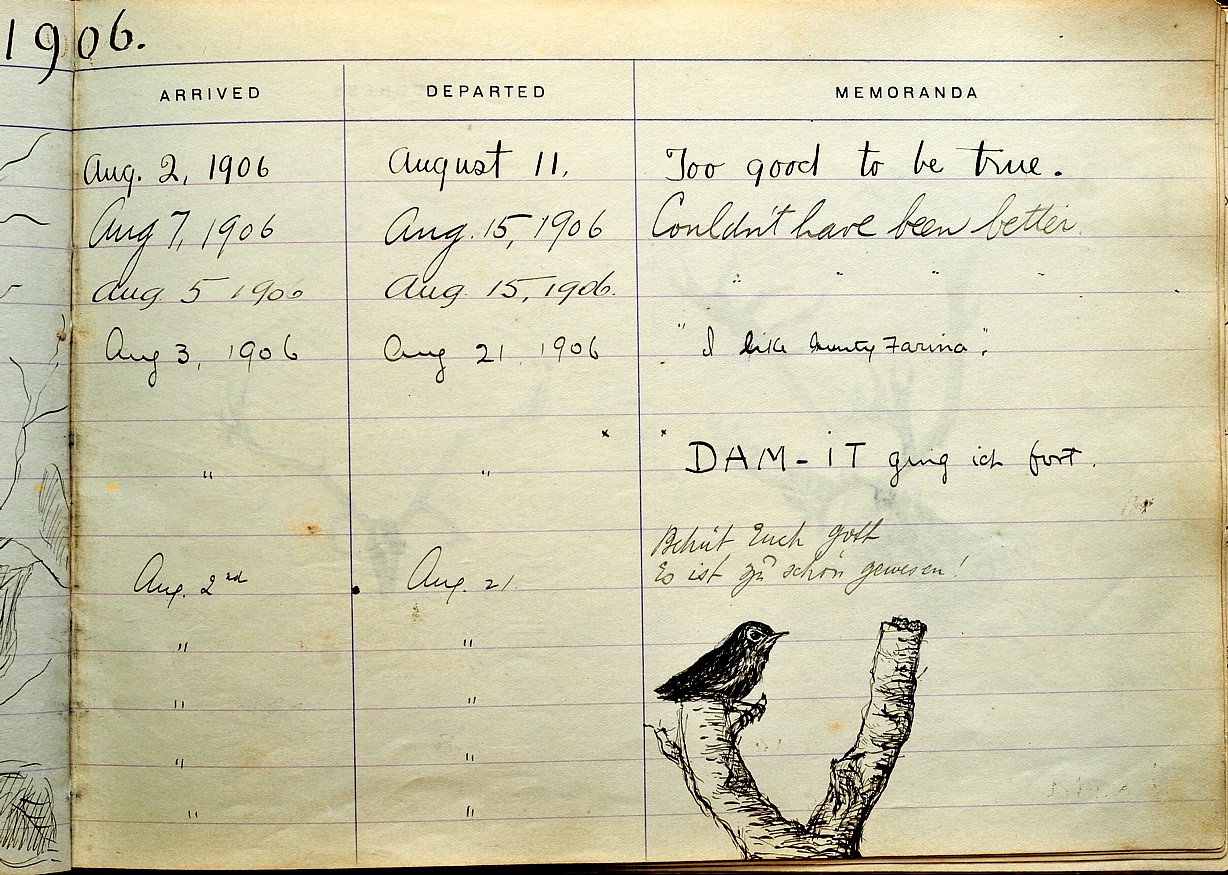 1906.
ARRIVED DEPARTED MEMORANDA
Aug. 2, 1906 August 11, Too good to be true.
Aug 7, 1906 Aug. 15, 1906 Couldn't have been better.
Aug 5 1906 Aug. 15, 1906. " " " "
Aug 3, 1906 Aug 21, 1906 "I like Aunty Farina".
" " DAM-IT ging ich fort.
Behüt Euch Gott
Aug. 2nd Aug. 21. Es ist zu schön gewesen!
" "
" "
" "
" "